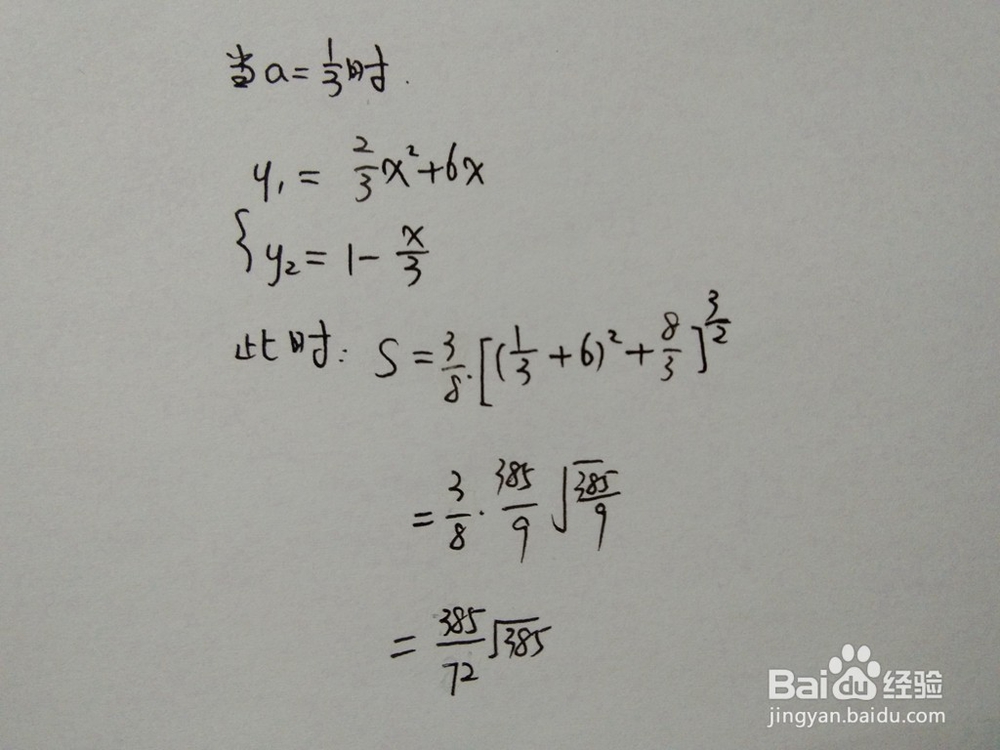 当a=1/3时.
y₁ = 2/3 x²+6x
{ y₂ = 1 - x/3
此时: S = 3/8·[(1/3+6)²+8/3]^(3/2)
= 3/8 · 385/9 √(385/9)
= 385/72 √385
Baidu 经验
jingyan.baidu.com